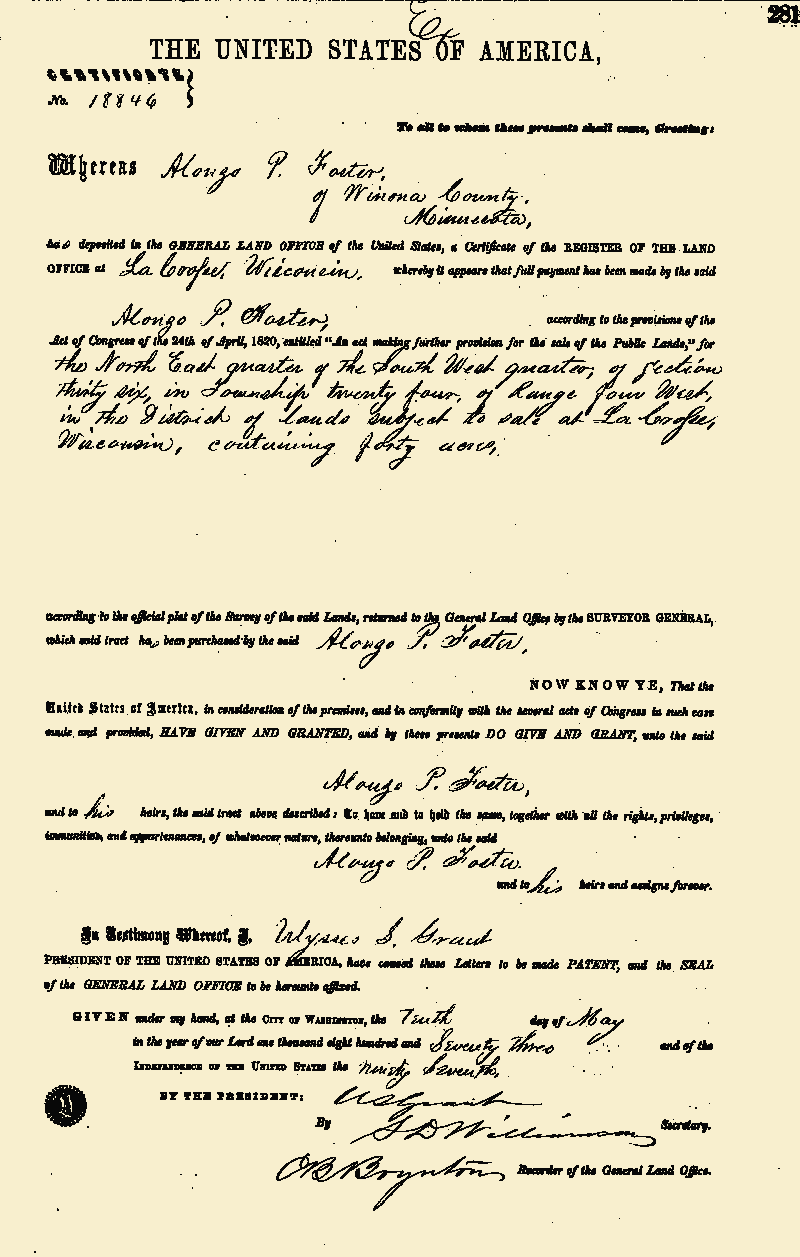 E
281
THE UNITED STATES OF AMERICA,
CERTIFICATE
No. 18846
To all to whom these presents shall come, Greeting:
Whereas Alonzo P. Foster,
of Winona County,
Minnesota,
has deposited in the GENERAL LAND OFFICE of the United States, a Certificate of the REGISTER OF THE LAND
OFFICE at La Crosse, Wisconsin, whereby it appears that full payment has been made by the said
Alonzo P. Foster, according to the provisions of the
Act of Congress of the 24th of April, 1820, entitled "An act making further provision for the sale of the Public Lands," for
the North East quarter of the South West quarter, of Section
thirty six, in Township twenty four, of Range four West,
in the District of lands subject to sale at La Crosse,
Wisconsin, containing forty acres,
according to the official plat of the Survey of the said Lands, returned to the General Land Office by the SURVEYOR GENERAL,
which said tract has been purchased by the said Alonzo P. Foster,
NOW KNOW YE, That the
United States of America, in consideration of the premises, and in conformity with the several acts of Congress in such case
made and provided, HAVE GIVEN AND GRANTED, and by these presents DO GIVE AND GRANT, unto the said
Alonzo P. Foster,
and to his heirs, the said tract above described: To have and to hold the same, together with all the rights, privileges,
immunities, and appurtenances, of whatsoever nature, thereunto belonging, unto the said
Alonzo P. Foster
and to his heirs and assigns forever.
In Testimony Whereof, I, Ulysses S. Grant
PRESIDENT OF THE UNITED STATES OF AMERICA, have caused these Letters to be made PATENT, and the SEAL
of the GENERAL LAND OFFICE to be hereunto affixed.
GIVEN under my hand, at the CITY OF WASHINGTON, the Tenth day of May
in the year of our Lord one thousand eight hundred and Seventy three and of the
INDEPENDENCE OF THE UNITED STATES the ninety seventh.
BY THE PRESIDENT: U S Grant
By S D Williamson Secretary.
O B Boynton, Recorder of the General Land Office.